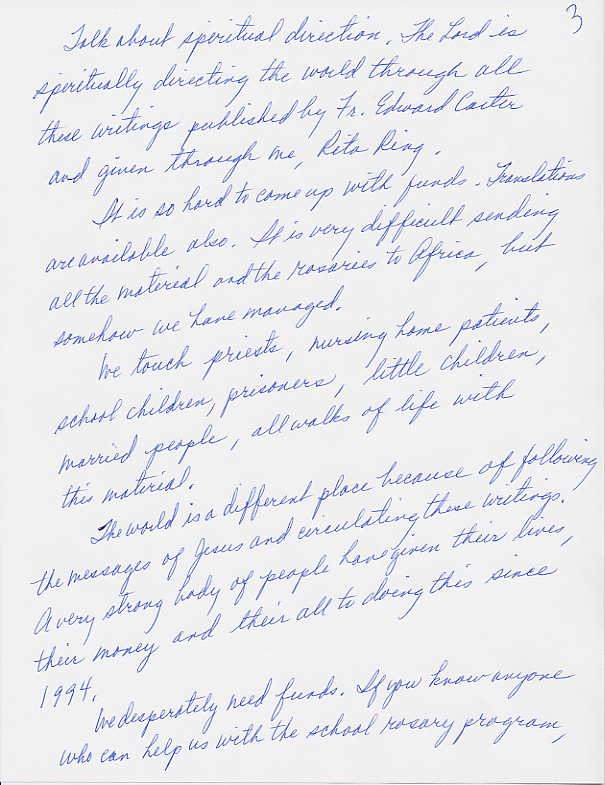 3
Talk about spiritual direction. The Lord is
spiritually directing the world through all
these writings published by Fr. Edward Carter
and given through me, Rita Ring.
It is so hard to come up with funds. Translations
are available also. It is very difficult sending
all the material and the rosaries to Africa, but
somehow we have managed.
We touch priests, nursing home patients,
school children, prisoners, little children,
married people, all walks of life with
this material.
The world is a different place because of following
the messages of Jesus and circulating these writings.
A very strong body of people have given their lives,
their money and their all to doing this since
1994.
We desperately need funds. If you know anyone
who can help us with the school rosary program,